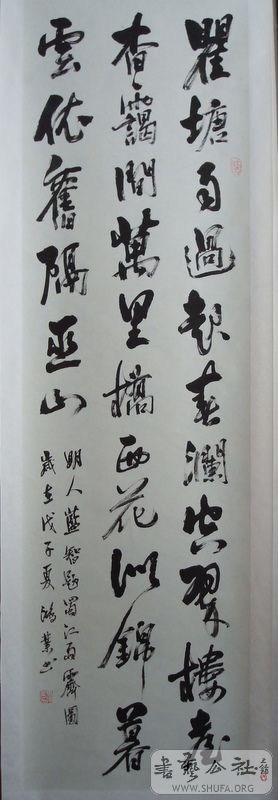 瞿塘雨過起春瀾空翠樓臺
杳靄間萬里橋西花似錦暮
雲依舊隔巫山
明人藍智題蜀江雨霽圖
歲在戊子夏鴻業书
書藝公社
WWW.SHUFA.ORG